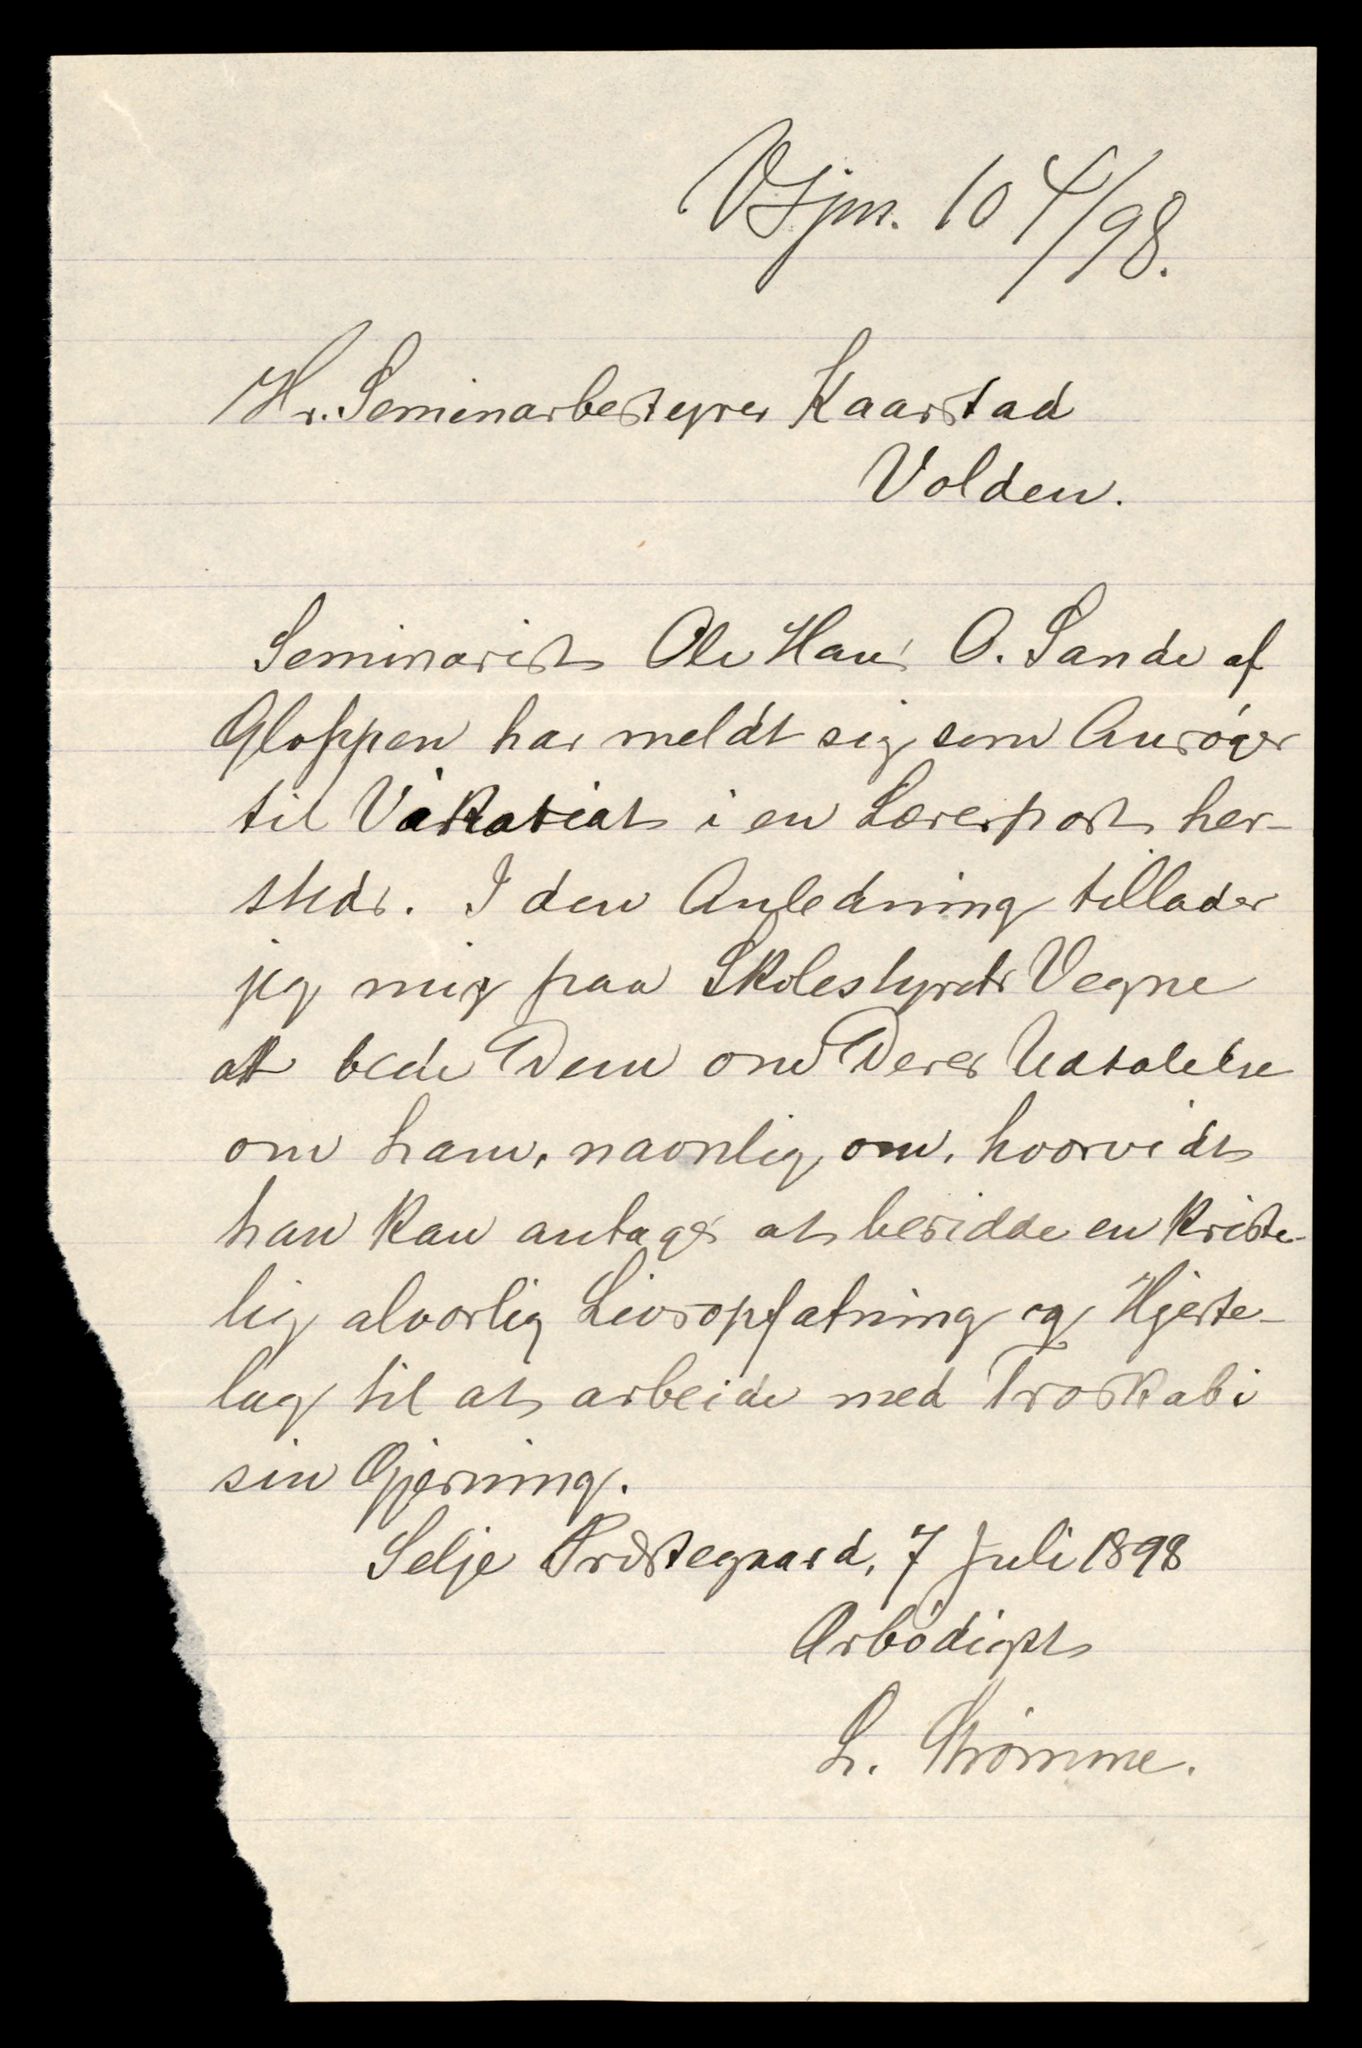 VSjm. 104/98.
Hr. Seminarbestyrer Kaarstad
Volden.
Seminarist Ole Hans O. Sande af
Gloppen har meldt sig som Ansøger
til Vikariat i en Lærerpost her-
steds. I den Anledning tillader
jeg mig paa Skolestyrets Vegne
at bede Dem om Deres Udtalelse
om ham, navnlig om, hvorvidt
han kan antages at besidde en kriste-
lig alvorlig Livsopfatning og Hjerte-
lag til at arbeide med Troskab i
sin Gjerning.
Selje Præstegaard, 7 Juli 1898
Ærbødigst
L. Strømme.